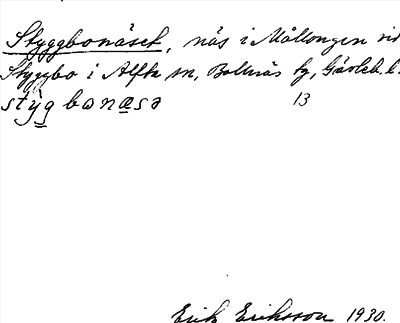 Styggbonäset, näs i Mållången vid
Styggbo i Alfta sn, Bollnäs fg, Gävleb. l.
stẏg bonæsə 13
Erik Eriksson 1930.